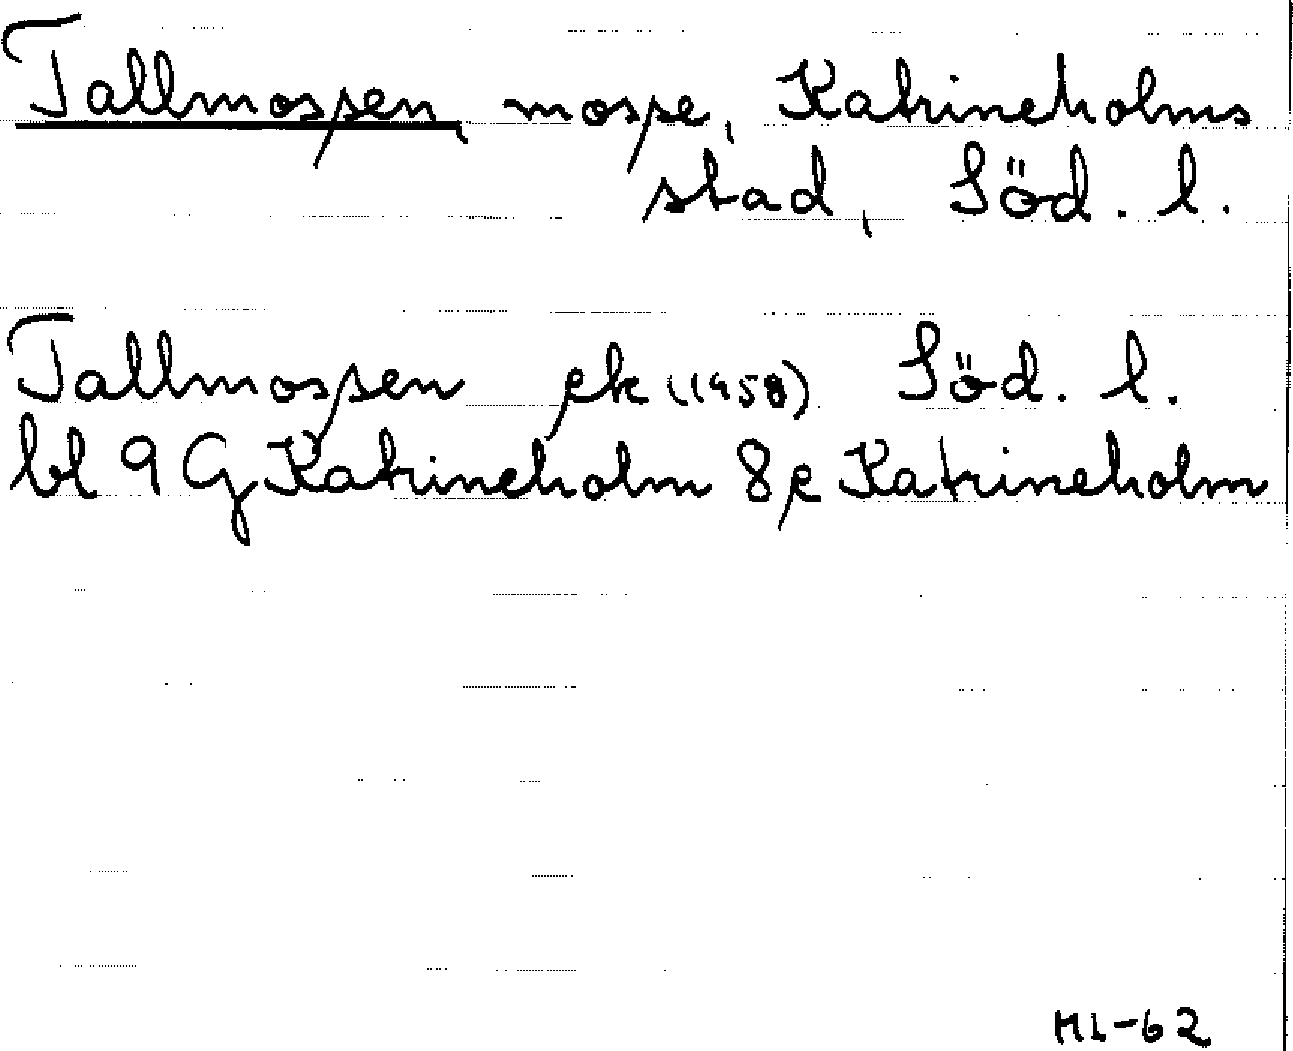 Tallmossen, mosse, Katrineholms
stad, Söd. l.
Tallmossen ek (1958) Söd. l.
bl 9 G Katrineholm 8 e Katrineholm
ML-62